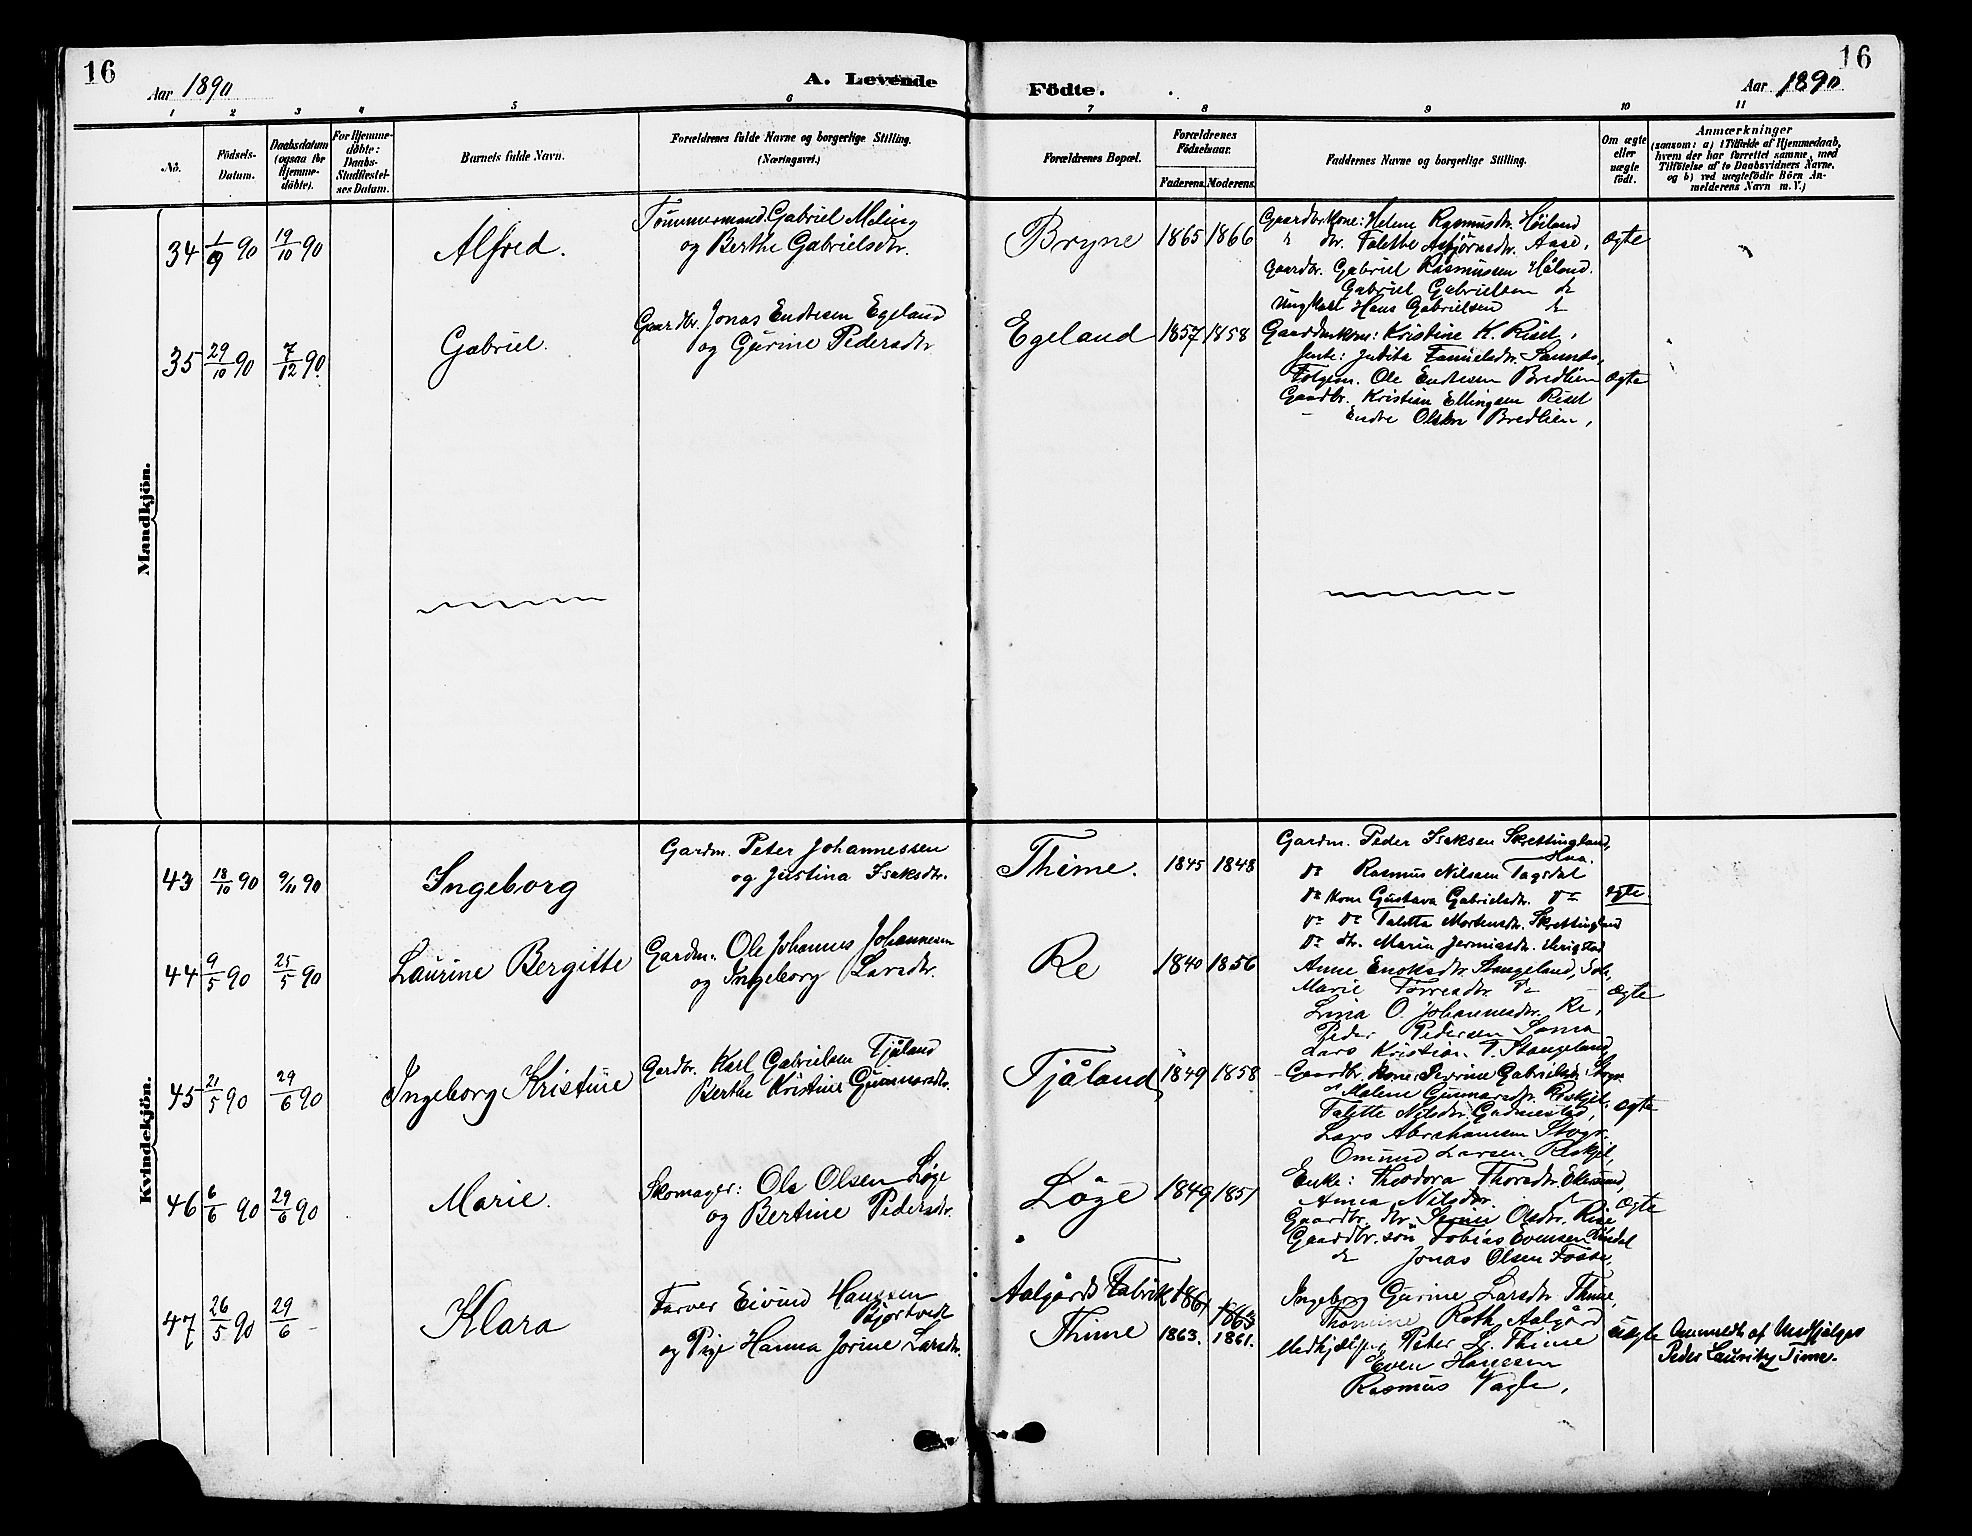 16
Aar 1890
A. Levende
Födte.
Aar 1890
16
1 2 3 4 5 6 7 8 9 10 11
No.
Födsels-Datum.
Daabsdatum (ogsaa for Hjemme-döbte).
For Hjemme-döbte: Daabs-Stadfæstel-ses Datum.
Barnets fulde Navn.
Forældrenes fulde Navne og borgerlige Stilling. (Næringsvei.)
Forældrenes Bopæl.
Forældrenes Födselsaar.
Faderens. Moderens.
Faddernes Navne og borgerlige Stilling.
Om ægte eller uægte födt.
Anmærkninger
(saasom: a) i Tilfælde af Hjemmedaab,
hvem der har forrettet samme, med
Tilföielse af to Daabsvidners Navne,
og b) ved uægtefödte Börn An-
melderens Navn m. V.)
Mandkjön.
34 1/9 90 19/10 90 Alfred.
Tömmermand. Gabriel Meling
og Berthe Gabrielsdtr.
Bryne 1865 1866
Gaardbr.kone: Helene Rasmusdtr. Höiland
dtr. Talette Asbjörnsdtr. Aase,
Gaardbr. Gabriel Rasmussen Håland.
Gabriel Gabrielsen do
Ungkarl Hans Gabrielsen do
ægte
35 29/10 90 7/12 90 Gabriel.
Gaardbr. Jonas Endresen Egeland
og Gurine Pedersdtr.
Egeland 1857 1858
Kristine K. Risel,
Ole Endresen Bredlien
Gaardbr. Kristian Ellingsen Risel
Endre Olsen Bredlien,
ægte
Kvindekjön.
43 18/10 90 9/11 90 Ingeborg
Gardm. Peter Johannessen
og Justina Isaksdtr.
Thime. 1845 1848
Gardm. Peder Isaksen Skrettingland,
do Rasmus Nilsen Tagsdal
do kone Gustava Gabrielsdtr. do
do do Taletta Mortensdtr. Skrettingland
do dtr. Maria Jermiasdtr.
ægte.
44 9/5 90 25/5 90 Laurine Bergitte
Gardm. Ole Johannes Johannesen
og Ingeborg Larsdtr.
Re 1840 1856
Anne Enoksdtr. Stangeland,
Marie Torresdtr. do
O. Johannesdtr. Re,
Peder Pedersen
Lars Kristian T. Stangeland,
ægte
45 21/5 90 29/6 90 Ingeborg Kristine
Gardbr. Karl Gabrielsen Tjåland
Berthe Kristine Gunnarsdtr.
Tjåland 1849 1858
Gaardbr. kone:
Malene Gunnarsdtr.
Talette Nilsdtr.
Lars Abrahamsen
Omund Larsen
ægte
46 6/6 90 29/6 90 Marie.
Skomager: Ole Olsen Löge
og Bertine Pedersdtr.
Löge 1849 1851
Enke: Theodora
Anna Nilsdtr. do
Gaardbr. dtr. Olsdtr.
Gaardbr. sön Tobias Evensen
do Jonas Olsen
ægte
47 26/5 90 29/6 Klara
Farver Eivind Hanssen
og Pige Hanna Jorine Larsdtr.
Aalgårds Fabrik
Thime 1863. 1861.
Ingeborg Gurine Larsdtr. Thime,
Roth, Aalgård
Medhjælper Peter L. Thime
Even Hanssen
Rasmus Vagle,
uægte
Anmeldt af Medhjælper
Peder Time.